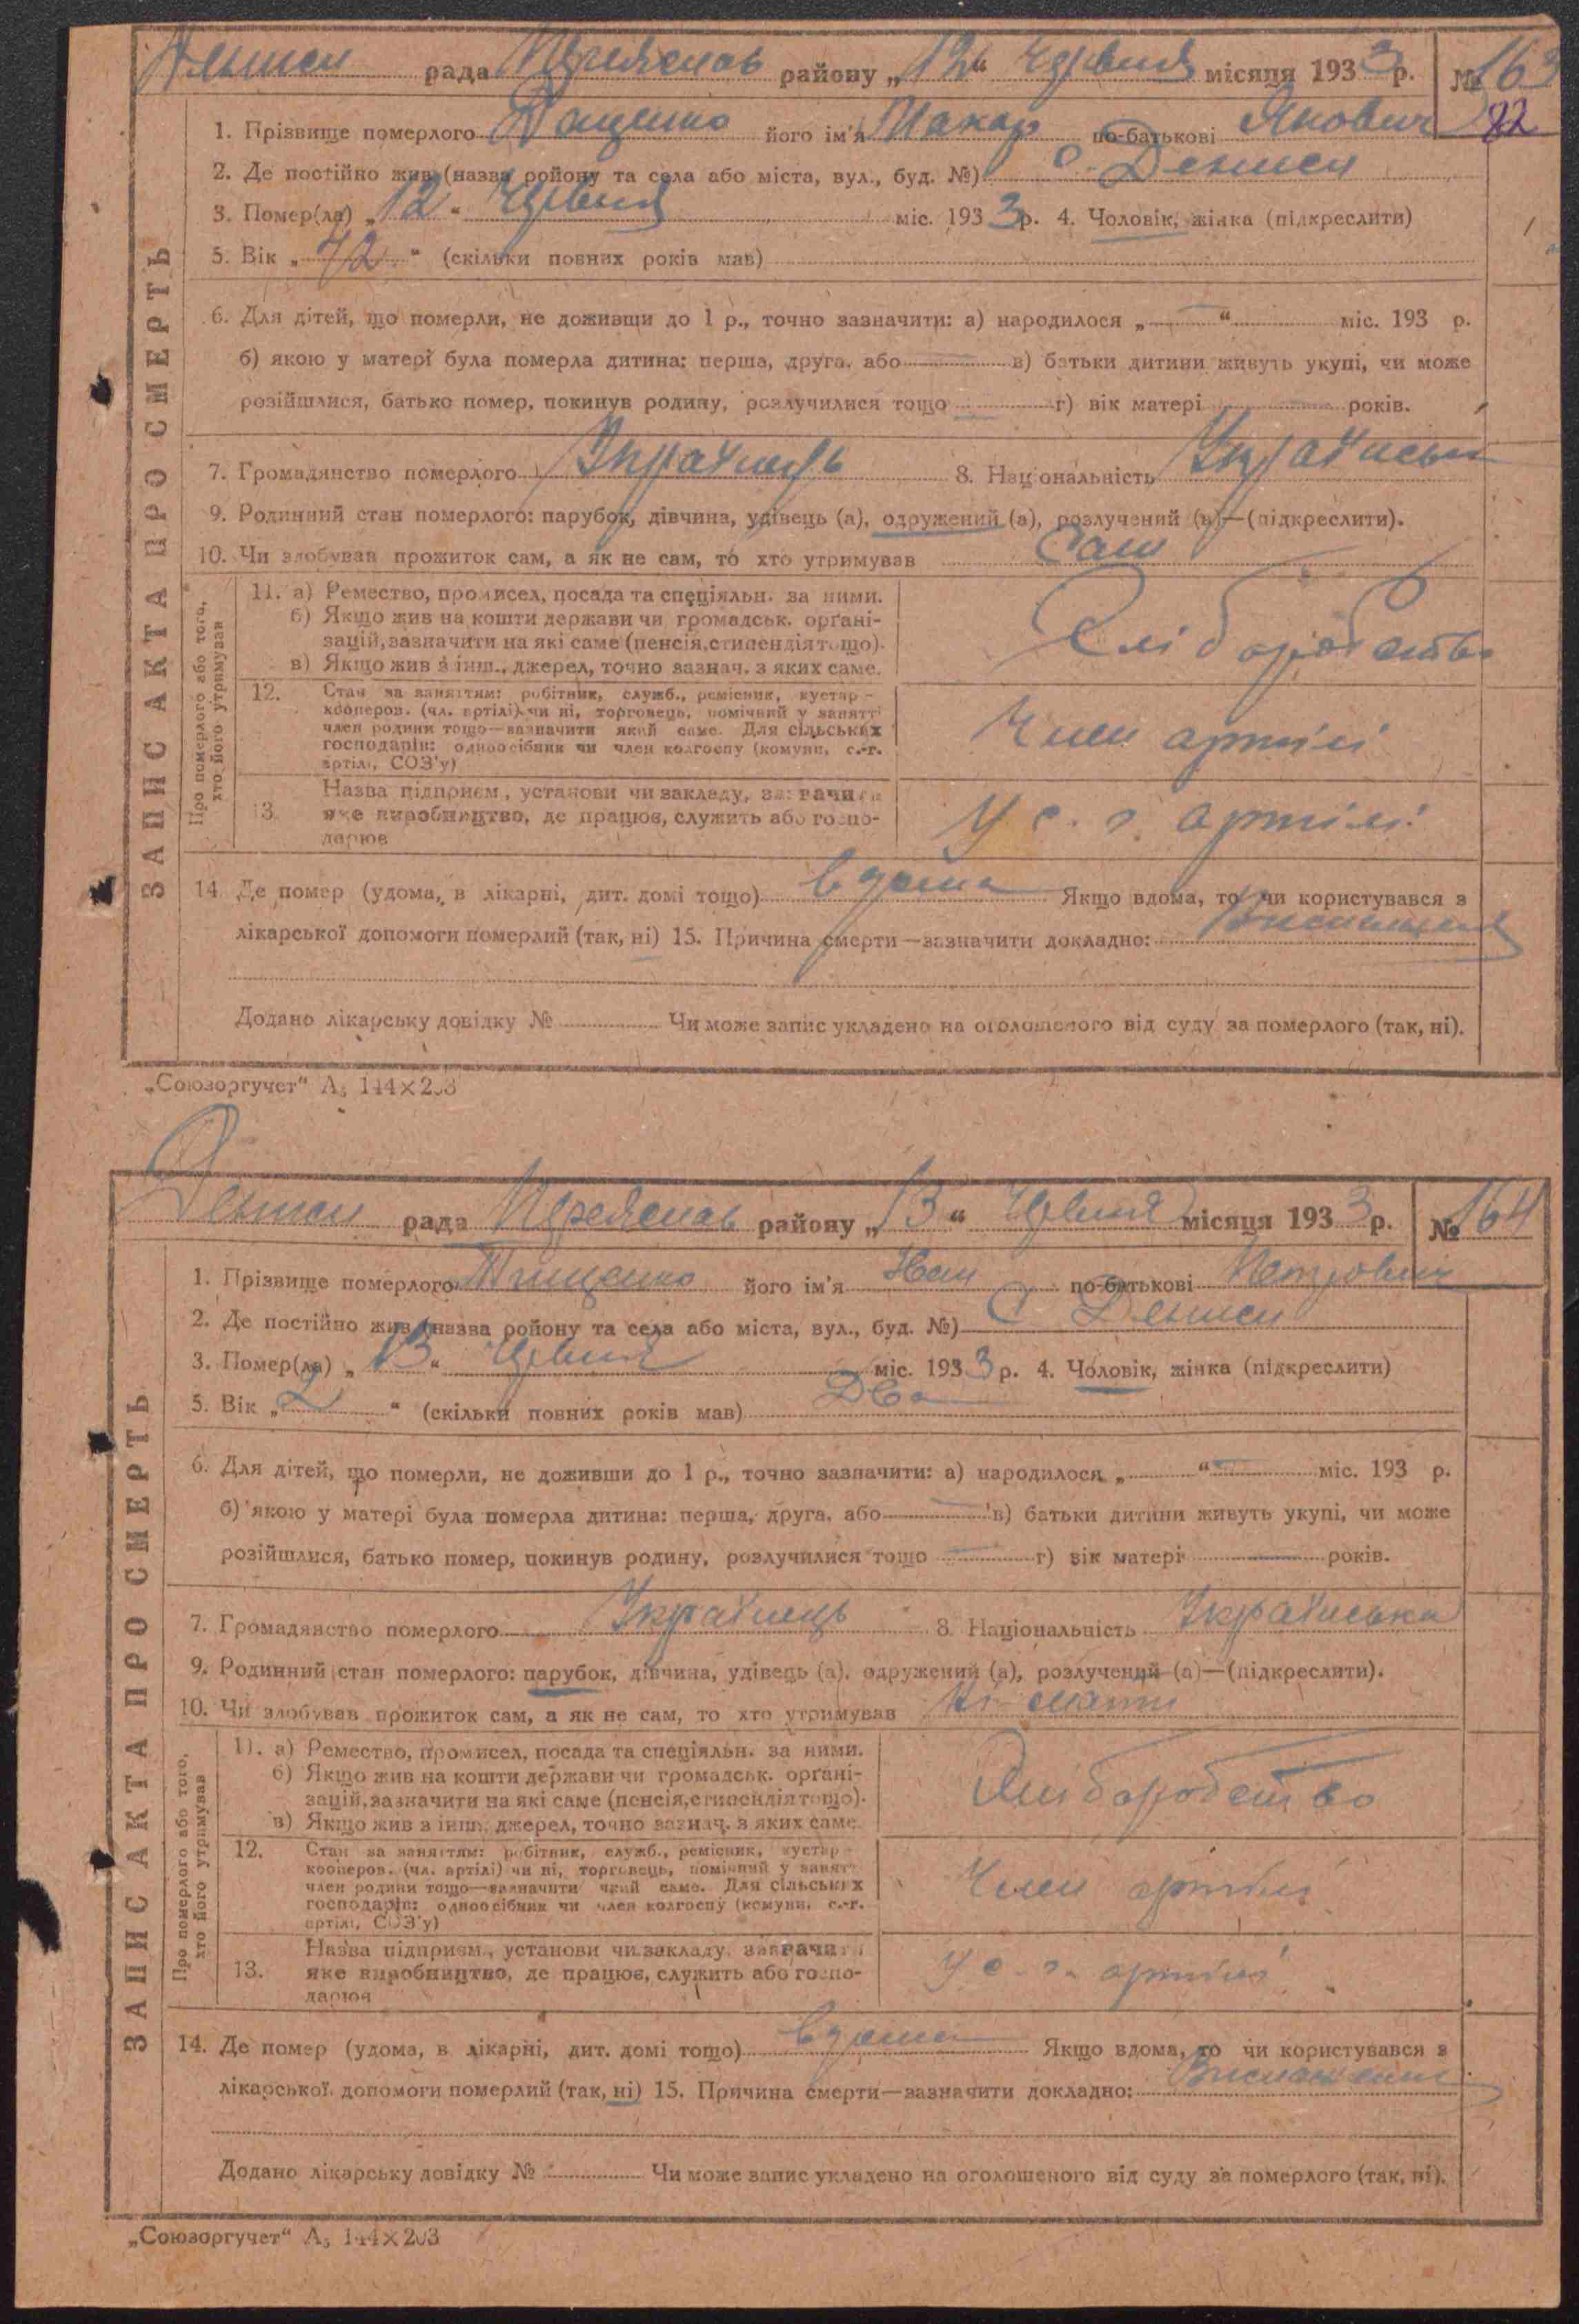 Дениси рада Переяслав району „12“ Червня місяця 1933 р. № 163
82
1. Прізвище померлого Даценко його ім'я Макар по-батькові Якович
2. Де постійно жив (назва ройону та села або міста, вул., буд. №) с. Дениси
3. Помер(ла) „12“ Червня міс. 1933 р. 4. Чоловік, жінка (підкреслити)
5. Вік „72“ (скільки повних років мав)
6. Для дітей, що померли, не доживщи до 1 р., точно зазначити: а) народилося „ “ міс. 193 р.
б) якою у матері була померла дитина: перша, друга, або в) батьки дитини живуть укупі, чи може
розійшлися, батько помер, покинув родину, розлучилися тощо г) вік матері років.
7. Громадянство померлого Українець 8. Національність
9. Родинний стан померлого: парубок, дівчина, удівець (а), одружений (а), розлучений (а)—(підкреслити).
10. Чи здобував прожиток сам, а як не сам, то хто утримував Сам
ЗАПИС АКТА ПРО СМЕРТЬ
Про померлого або того,
хто його утримував
11. а) Ремество, промисел, посада та спеціяльн. за ними.
б) Якщо жив на кошти держави чи громадськ. орґані-
зацій, зазначити на які саме (пенсія, стипендія тощо).
в) Якщо жив з інш., джерел, точно зазнач. з яких саме.
Хліборобство
12. Стан за заняттям: робітник, служб., ремісник, кустар -
кооперов. (чл. артілі) чи ні, торговець, помічний у занятті
член родини тощо—зазначити який саме. Для сільських
господарів: одноосібник чи член колгоспу (комуни, с.-г.
артілі, СОЗ'у)
Член артілі
13. Назва підприєм., установи чи закладу, зазначити
яке виробництво, де працює, служить або госпо-
дарює
У с. г. артілі
14. Де помер (удома, в лікарні, дит. домі тощо) вдома Якщо вдома, то чи користувався з
лікарської допомоги померлий (так, ні) 15. Причина смерти—зазначити докладно: Виснаження
Додано лікарську довідку № Чи може запис укладено на оголошеного від суду за померлого (так, ні).
„Союзоргучет“ А₅ 144×203
Дениси рада Переяслав району „13“ Червня місяця 1933 р. № 164
1. Прізвище померлого його ім'я Іван по-батькові Петрович
2. Де постійно жив (назва ройону та села або міста, вул., буд. №) С Дениси
3. Помер(ла) „13“ Червня міс. 1933 р. 4. Чоловік, жінка (підкреслити)
5. Вік „2“ (скільки повних років мав) Два
6. Для дітей, що померли, не доживши до 1 р., точно зазначити: а) народилося „ “ міс. 193 р.
б) якою у матері була померла дитина: перша, друга, або в) батьки дитини живуть укупі, чи може
розійшлися, батько помер, покинув родину, розлучилися тощо г) вік матері років.
7. Громадянство померлого Українець 8. Національність Українська
9. Родинний стан померлого: парубок, дівчина, удівець (а), одружений (а), розлучений (а)—(підкреслити).
10. Чи здобував прожиток сам, а як не сам, то хто утримував мати
ЗАПИС АКТА ПРО СМЕРТЬ
Про померлого або того,
хто його утримував
11. а) Ремество, промисел, посада та спеціяльн. за ними.
б) Якщо жив на кошти держави чи громадськ. орґані-
зацій, зазначити на які саме (пенсія, стипендія тощо).
в) Якщо жив з інш., джерел, точно зазнач. з яких саме.
Хліборобство
12. Стан за заняттям: робітник, служб., ремісник, кустар -
кооперов. (чл. артілі) чи ні, торговець, помічний у занятті
член родини тощо—зазначити який саме. Для сільських
господарів: одноосібник чи член колгоспу (комуни, с.-г.
артілі, СОЗ'у)
Член артілі
13. Назва підприєм., установи чи закладу, зазначити
яке виробництво, де працює, служить або госпо-
дарює
У с. г. артілі
14. Де помер (удома, в лікарні, дит. домі тощо) вдома Якщо вдома, то чи користувався з
лікарської допомоги померлий (так, ні) 15. Причина смерти—зазначити докладно: Виснаження
Додано лікарську довідку № Чи може запис укладено на оголошеного від суду за померлого (так, ні).
„Союзоргучет“ А₅ 144×203